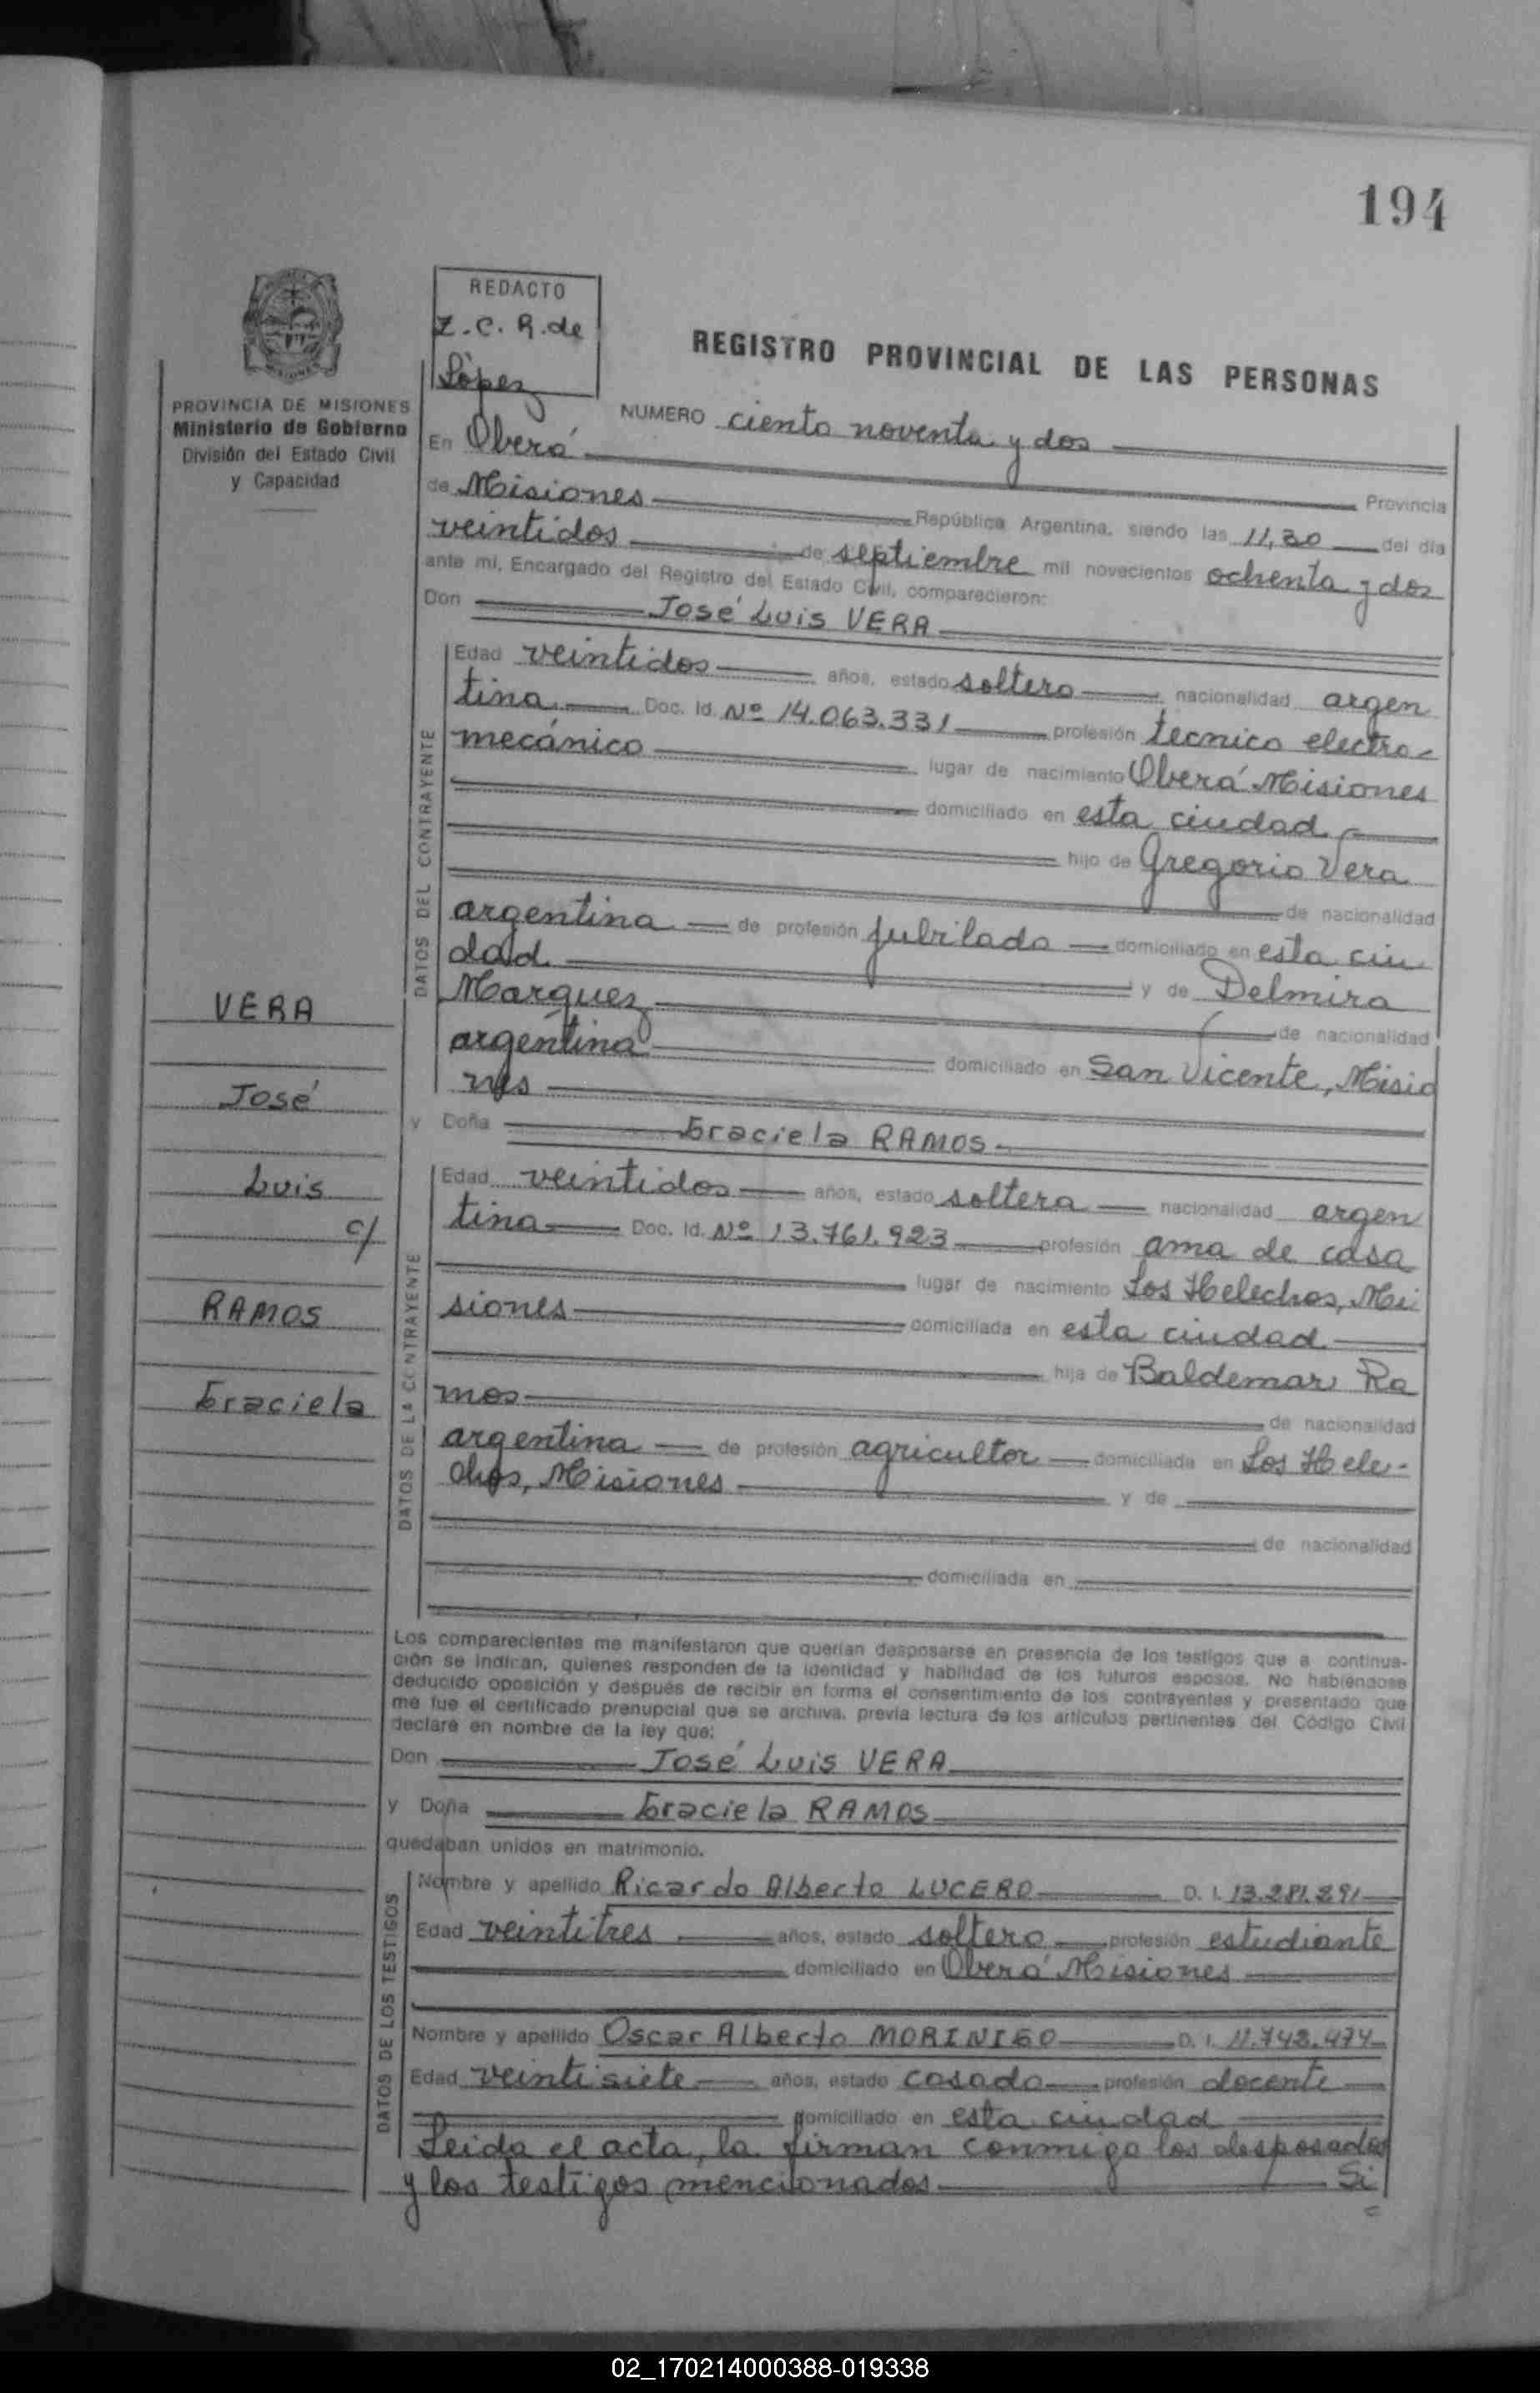 194
REDACTO
Z. C. R. de
López
REGISTRO PROVINCIAL DE LAS PERSONAS
PROVINCIA DE MISIONES
Ministerio de Gobierno
División del Estado Civil
y Capacidad
NUMERO ciento noventa y dos
En Oberá
Provincia
de Misiones República Argentina, siendo las 11,30 del día
veintidos de septiembre mil novecientos ochenta y dos
ante mí, Encargado del Registro del Estado Civil, comparecieron:
Don José Luis VERA
DATOS DEL CONTRAYENTE
Edad veintidos años, estado soltero nacionalidad argen
tina Doc. Id. Nº 14.063.331 profesión técnico electro-
mecánico lugar de nacimiento Oberá Misiones
domiciliado en esta ciudad
hijo de Gregorio Vera
de nacionalidad
argentina de profesión jubilado domiciliado en esta ciu
dad y de Delmira
Marquez de nacionalidad
argentina domiciliado en San Vicente, Misio
nes
y Doña Graciela RAMOS
VERA
José
Luis
c/
RAMOS
Graciela
DATOS DE LA CONTRAYENTE
Edad veintidos años, estado soltera nacionalidad argen
tina Doc. Id. Nº 13.761.923 profesión ama de casa
lugar de nacimiento Los Helechos, Mi
siones domiciliada en esta ciudad
hija de Baldemar Ra
mos de nacionalidad
argentina de profesión agricultor domiciliada en Los Hele-
chos, Misiones y de
de nacionalidad
domiciliada en
Los comparecientes me manifestaron que querían desposarse en presencia de los testigos que a continua-
ción se indican, quienes responden de la identidad y habilidad de los futuros esposos. No habiéndose
deducido oposición y después de recibir en forma el consentimiento de los contrayentes y presentado que
me fue el certificado prenupcial que se archiva, previa lectura de los artículos pertinentes del Código Civil
declaré en nombre de la ley que:
Don José Luis VERA
y Doña Graciela RAMOS
quedaban unidos en matrimonio.
DATOS DE LOS TESTIGOS
Nombre y apellido Ricardo Alberto LUCERO D. I. 13.281.891
Edad veintitres años, estado soltero profesión estudiante
domiciliado en Oberá Misiones
Nombre y apellido Oscar Alberto MORINIGO D. I. 11.748.474
Edad veintisiete años, estado casado profesión docente
domiciliado en esta ciudad
Leida el acta, la firman conmigo los desposados
y los testigos mencionados Si
02_170214000388-019338